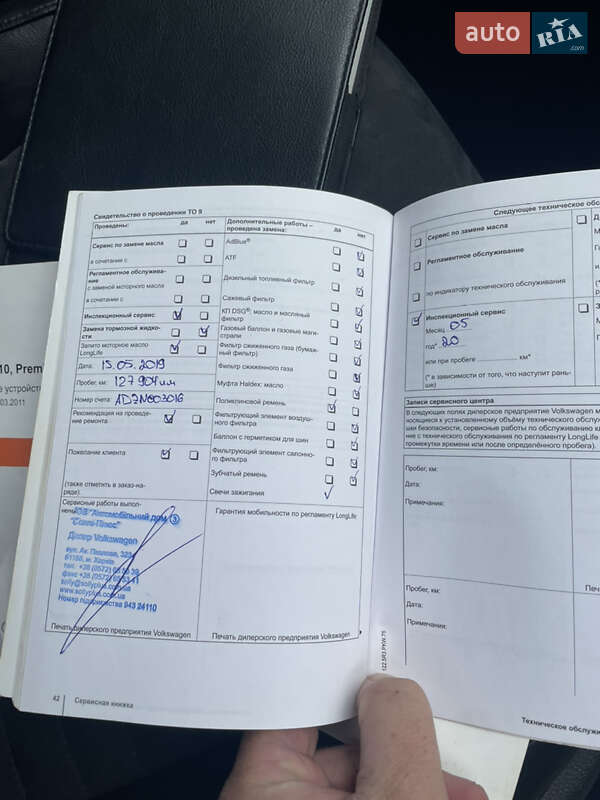 auto RIA.com
Свидетельство о проведении ТО 9
Проведены:
да
нет
Дополнительные работы –
проведена замена:
да
нет
Сервис по замене масла
в сочетании с:
Регламентное обслужива-
ние
с заменой моторного масла
в сочетании с:
Инспекционный сервис
Замена тормозной жидко-
сти
Залито моторное масло
LongLife
Дата: 15.05.2019
Пробег, км: 127 904 км
Номер счета: AD7N003016
Рекомендация на проведе-
ние ремонта
Пожелание клиента
(также отметить в заказ-на-
ряде).
AdBlue®
ATF
Дизельный топливный фильтр
Сажевый фильтр
КП DSG®: масло и масляный
фильтр
Газовый баллон и газовые маги-
страли
Фильтр сжиженного газа (бумаж-
ный фильтр)
Фильтр сжиженного газа
Муфта Haldex: масло
Поликлиновой ремень
Фильтрующий элемент воздуш-
ного фильтра
Баллон с герметиком для шин
Фильтрующий элемент салонно-
го фильтра
Зубчатый ремень
Свечи зажигания
Сервисные работы выпол-
ТОВ "Автомобільний дім
"Соллі-Плюс" 3
Дилер Volkswagen
вул. Ак. Павлова,
м. Харків
тел. +38 (0572)
факс +38 (0572)
solly@sollyplus.com.ua
www.sollyplus.com.ua
Номер підприємства 943 24110
Гарантия мобильности по регламенту LongLife
Печать дилерского предприятия Volkswagen
Печать дилерского предприятия Volkswagen
42
Сервисная книжка
122.5R3.PKW.75
10, Prem
е устройств
03.2011
Следующее техническое обс
Сервис по замене масла
Регламентное обслуживание
по индикатору технического обслуживания
Инспекционный сервис
Месяц 05
год* 20
или при пробеге
км*
(* в зависимости от того, что наступит рань-
ше)
Записи сервисного центра
В следующих полях дилерское предприятие Volkswagen м
носящиеся к установленному объёму технического обслу
ши безопасности; сервисные работы по обслуживанию к
ние с технического обслуживания по регламенту LongLife
промежутки времени или после определённого пробега).
Пробег, км:
Дата:
Примечания:
Пробег, км:
Дата:
Примечания:
Печ
Техническое обслужи